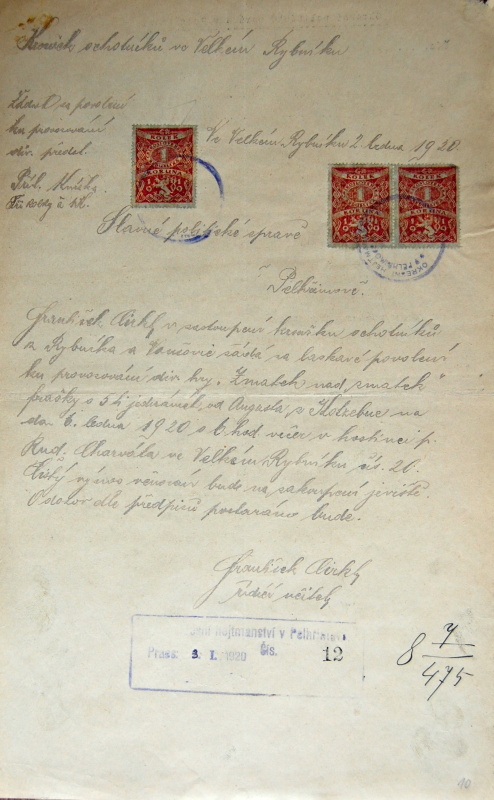 Kroužek ochotníků ve Velkém Rybníku
Žádá o povolení
ku provozování
div. představ.
Příl. knížka
Ve Velkém Rybníku 2. ledna 1920.
KOLEK
1
KORUNA
KOLEK
1
KORUNA
KOLEK
1
KORUNA
Slavné politické správě
v Pelhřimově.
František Cirkl v zastoupení kroužku ochotníků
z Rybníka a žádá za laskavé povolení
ku provozování div. hry „Zmatek nad zmatek"
frašky o 5ti jednáních, od Augusta z Kotzebue na
den 6. ledna 1920 o 6. hod. večer v hostinci p.
Rud. Charváta ve Velkém Rybníku čís. 20.
Čistý výnos věnován bude na zakoupení jeviště.
O dozor dle předpisů postaráno bude.
František Cirkl
řídící učitel
hejtmanství v Pelhřimově
Praes: 3. I. 1920 Čís. 12
8 7/475
10